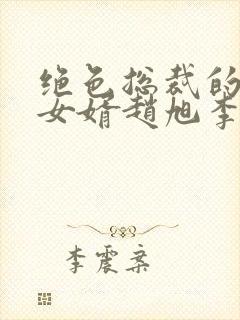 绝色总裁的
女婿赵旭李
李震案